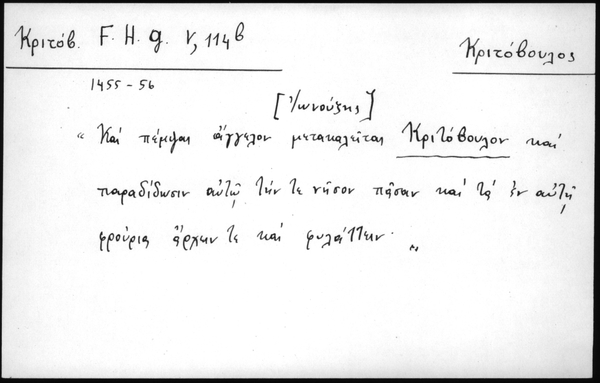 Κριτόβ. F. H. g. V, 114b
Κριτόβουλος
1455 - 56
[Ἰωνούζης]
“ καὶ πέμψας ἄγγελον μετακαλεῖται Κριτόβουλον καὶ
παραδίδωσιν αὐτῷ τήν τε νῆσον πᾶσαν καὶ τὰ ἐν αὐτῇ
φρούρια ἄρχειν τε καὶ φυλάττειν. „